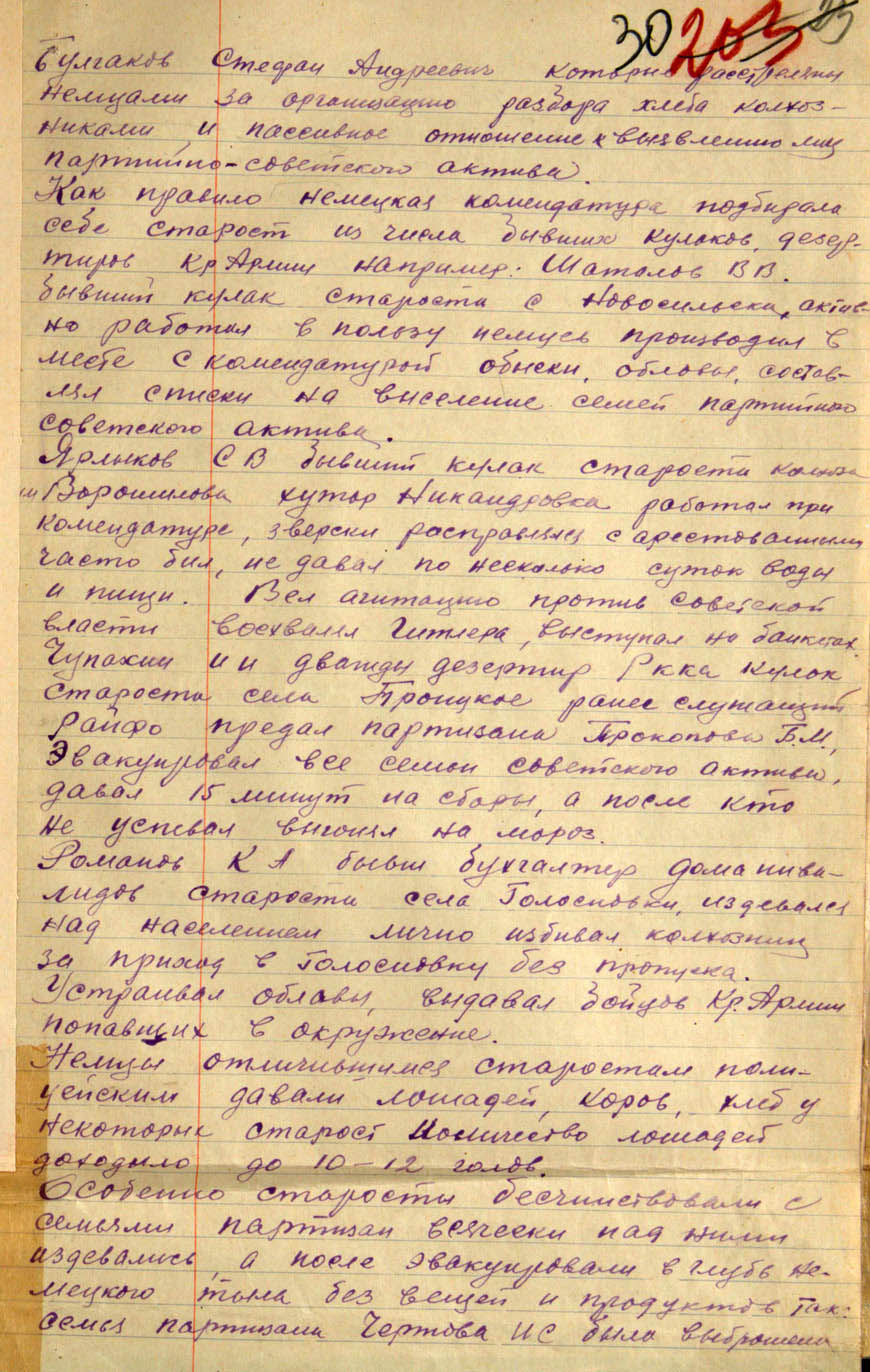 30 203
Булгаков Стефан Андреевич которые расстреляны
немцами за организацию разбора хлеба колхоз-
никами и пассивное отношение к выявлению лиц
партийно-советского актива.
Как правило немецкая комендатура подбирала
себе старост из числа бывших кулаков, дезер-
тиров Кр Армии например: Шаталов В В.
бывший кулак староста с Новосильска, актив-
но работал в пользу немцев производил в
месте с комендатурой обыски, облавы, состав-
лял списки на выселение семей партийного
советского актива.
Ярлыков С В бывший кулак староста колхоза
им Ворошилова хутор Никандровка работал при
комендатуре, зверски расправлялся с арестованными
часто бил, не давал по несколько суток воды
и пищи. Вел агитацию против советской
власти восхвалял Гитлера, выступал на банкетах.
Чупахин И И дважды дезертир Ркка кулак
староста села Троицкое ранее служащий
райфо предал партизана Прокопова Б.М.,
Эвакуировал все семьи советского актива,
давал 15 минут на сборы, а после кто
не успевал выгонял на мороз.
Романов К А бывш бухгалтер дома инва-
лидов староста села Голосновки, издевался
над населением лично избивал колхозниц
за приход в Голосновку без пропуска.
Устраивал облавы, выдавал бойцов Кр. Армии
попавших в окружение.
Немцы отличившимся старостам поли-
цейским давали лошадей, коров, хлеб у
некоторых старост количество лошадей
доходило до 10-12 голов.
Особенно старосты бесчинствовали с
семьями партизан всячески над ними
издевались, а после эвакуировали в глубь не-
мецкого тыла без вещей и продуктов так:
семья партизана Чертова И С была выброшена